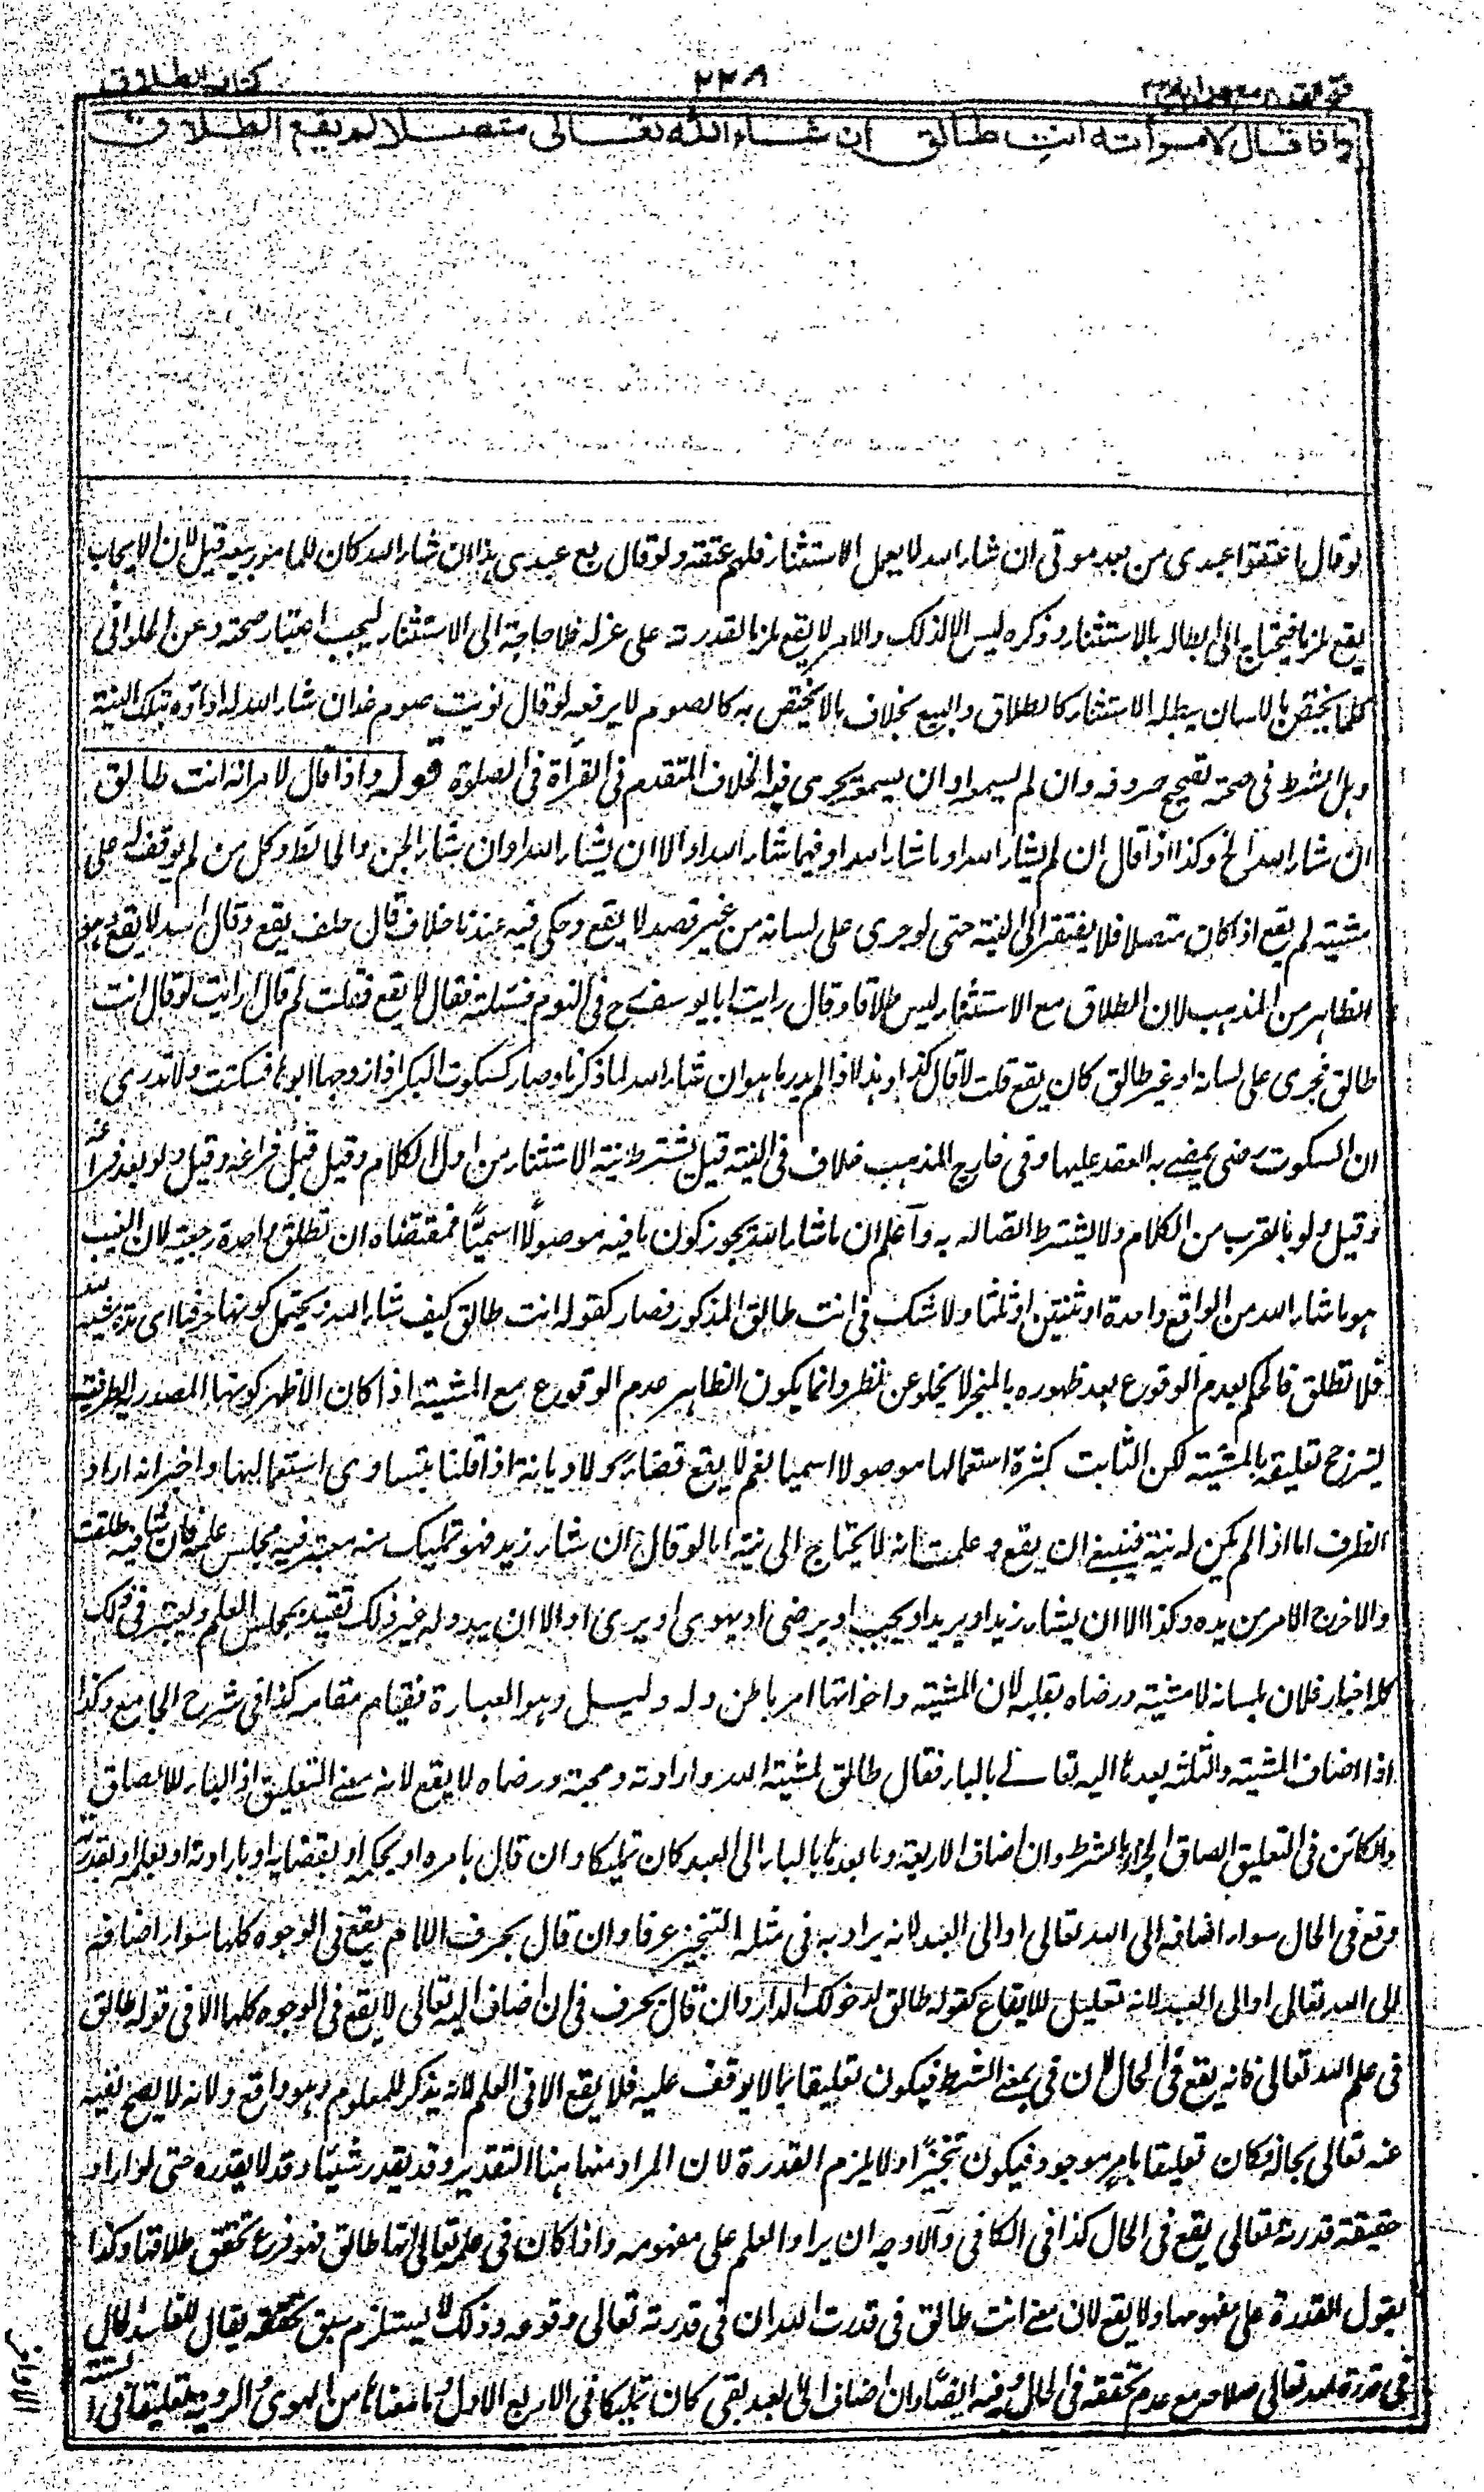 كتاب الطلاق
٢٢٨
فتح القدير مع هداية
واذا قال لامرأته انتِ طالق ان شاء الله تعالى متصلا لم يقع الطلاق
لو قال اعتقوا عبدى من بعد موتى ان شاء الله لا يعمل الاستثناء فلهم عتقه ولو قال بع عبدى هذا ان شاء الله كان للمامور بيعه قيل لان الايجاب
يقع ملزما فيحتاج الى ابطاله بالاستثناء وذكره ليس الا لذلك والامر لا يقع ملزما لقدرته على عزله فلا حاجة الى الاستثناء ليجب اعتبار صحته وعن الحلوانى
كلما يختص باللسان يبطله الاستثناء كالطلاق والبيع بخلاف ما لا يختص به كالصوم لا يرفعه لو قال نويت صوم غد ان شاء الله له اداؤه بتلك النية
وهل يشترط فى صحته تصحيح حروفه وان لم يسمعه او ان يسمع يجرى فيه الخلاف المتقدم فى القرأة فى الصلوة قوله واذا قال لامرأته انت طالق
ان شاء الله الخ وكذا اذا قال ان لم يشأ الله او ما شاء الله او فيما شاء الله او الا ان يشاء الله او ان شاء الجن والحائط وكل من لم يوقف له على
مشيته لم يقع اذا كان متصلا فلا يفتقر الى النية حتى لو جرى على لسانه من غير قصد لا يقع وحكى فيه عندنا خلاف قال خلف يقع وقال اسد لا يقع وهو
الظاهر من المذهب لان الطلاق مع الاستثناء ليس طلاقا وقال رايت ابا يوسف رح فى النوم فسئلته فقال لا يقع فقلت لم قال ارايت لو قال انت
طالق فجرى على لسانه او غير طالق كان يقع قلت لا قال كذا وهذا اذا لم يدر ما هو ان شاء الله لما ذكرنا وصار كسكوت البكر اذا زوجها ابوها فسكتت ولا تدرى
ان السكوت رضى يمضى به العقد عليها وفى خارج المذهب خلاف فى النية قيل يشترط نية الاستثناء من اول الكلام وقيل قبل فراغه وقيل ولو بعد فراغه
وقيل ولو بالقرب من الكلام ولا يشترط اتصاله به وأعلم ان ما شاء الله يجوز كون ما فيه موصولًا اسميًّا فمقتضاه ان تطلق واحدة رجعية لان الغيب
هو ما شاء الله من الواقع واحدة او ثنتين او ثلثا ولا شك فى انت طالق المذكور فصار كقوله انت طالق كيف شاء الله ويحتمل كونها حرفيا اى مدة مشيته
فلا تطلق فالحكم بعدم الوقوع بعد ظهوره بالمنجز لا يخلو عن نظر وانما يكون الظاهر عدم الوقوع مع المشية اذا كان الاظهر كونها المصدرية الظرفية
ليترجح تعليقه بالمشية لكن الثابت كثرة استعمالها موصولا اسميا نعم لا يقع قضاء ولا ديانة اذا قلنا بتساوى استعماليها واخبر انه اراد
الظرف اما اذا لم يكن له نية فينبغى ان يقع وعلمت انه لا يحتاج الى نية اما لو قال ان شاء زيد فهو تمليك منه معتبر فيه مجلس علمه فان شاء فيه طلقت
والا خرج الامر من يده وكذا الا ان يشاء زيد او يريد او يحب او يرضى او يهوى او يرى او الا ان يبدو له غير ذلك تقيد بمجلس العلم ويعتبر فى ذلك
كله اخبار فلان بلسانه لا مشيته ورضاه بقلبه لان المشية واخواتها امر باطن وله دليل وهو العبارة فيقام مقامه كذا فى شرح الجامع وكذا
اذا اضاف المشية والثلثة بعدها اليه تعالى بالباء فقال طالق لمشية الله وارادته ومحبته ورضاه لا يقع لانه معنى التعليق اذ الباء للالصاق
والكائن فى التعليق الصاق الجزاء بالشرط وان اضاف الاربعة وما بعدها بالباء الى العبد كان تمليكا وان قال بامره او بحكمه او بقضائه او بارادته او بعلمه او بقدرته
وقع فى الحال سواء اضافه الى الله تعالى او الى العبد لانه يراد به فى مثله التنجيز عرفا وان قال بحرف اللام يقع فى الوجوه كلها سواء اضافه
الى الله تعالى او الى العبد لانه تعليل للايقاع كقوله طالق لدخولك الدار وان قال بحرف فى ان اضاف اليه تعالى لا يقع فى الوجوه كلها الا فى قوله طالق
فى علم الله تعالى فانه يقع فى الحال لان فى بمعنى الشرط فيكون تعليقا بما لا يوقف عليه فلا يقع الا فى العلم لانه يذكر للمعلوم وهو واقع ولانه لا يصح نفيه
عنه تعالى بحال فكان تعليقا بامر موجود فيكون تنجيزًا ولا يلزم القدرة لان المراد منها هنا التقدير وقد يقدر شيئا وقد لا يقدره حتى لو اراد
حقيقة قدرته تعالى يقع فى الحال كذا فى الكافى والاوجه ان يراد العلم على مفهومه واذا كان فى علمه تعالى انها طالق فهو فرع تحقق طلاقها وكذا
يقول القدرة على مفهومها ولا يقع لان معنى انت طالق فى قدرت الله ان فى قدرته تعالى وقوعه وذلك لا يستلزم سبق تحققه يقال للفاسد الحال
فى قدرة الله تعالى صلاحه مع عدم تحققه فى الحال وفيه ايضًا وان اضاف الى العبد بقى كان تمليكا فى الاربع الاول وما معناها من الهوى والروية تعليقا فى الستة
الاواخر